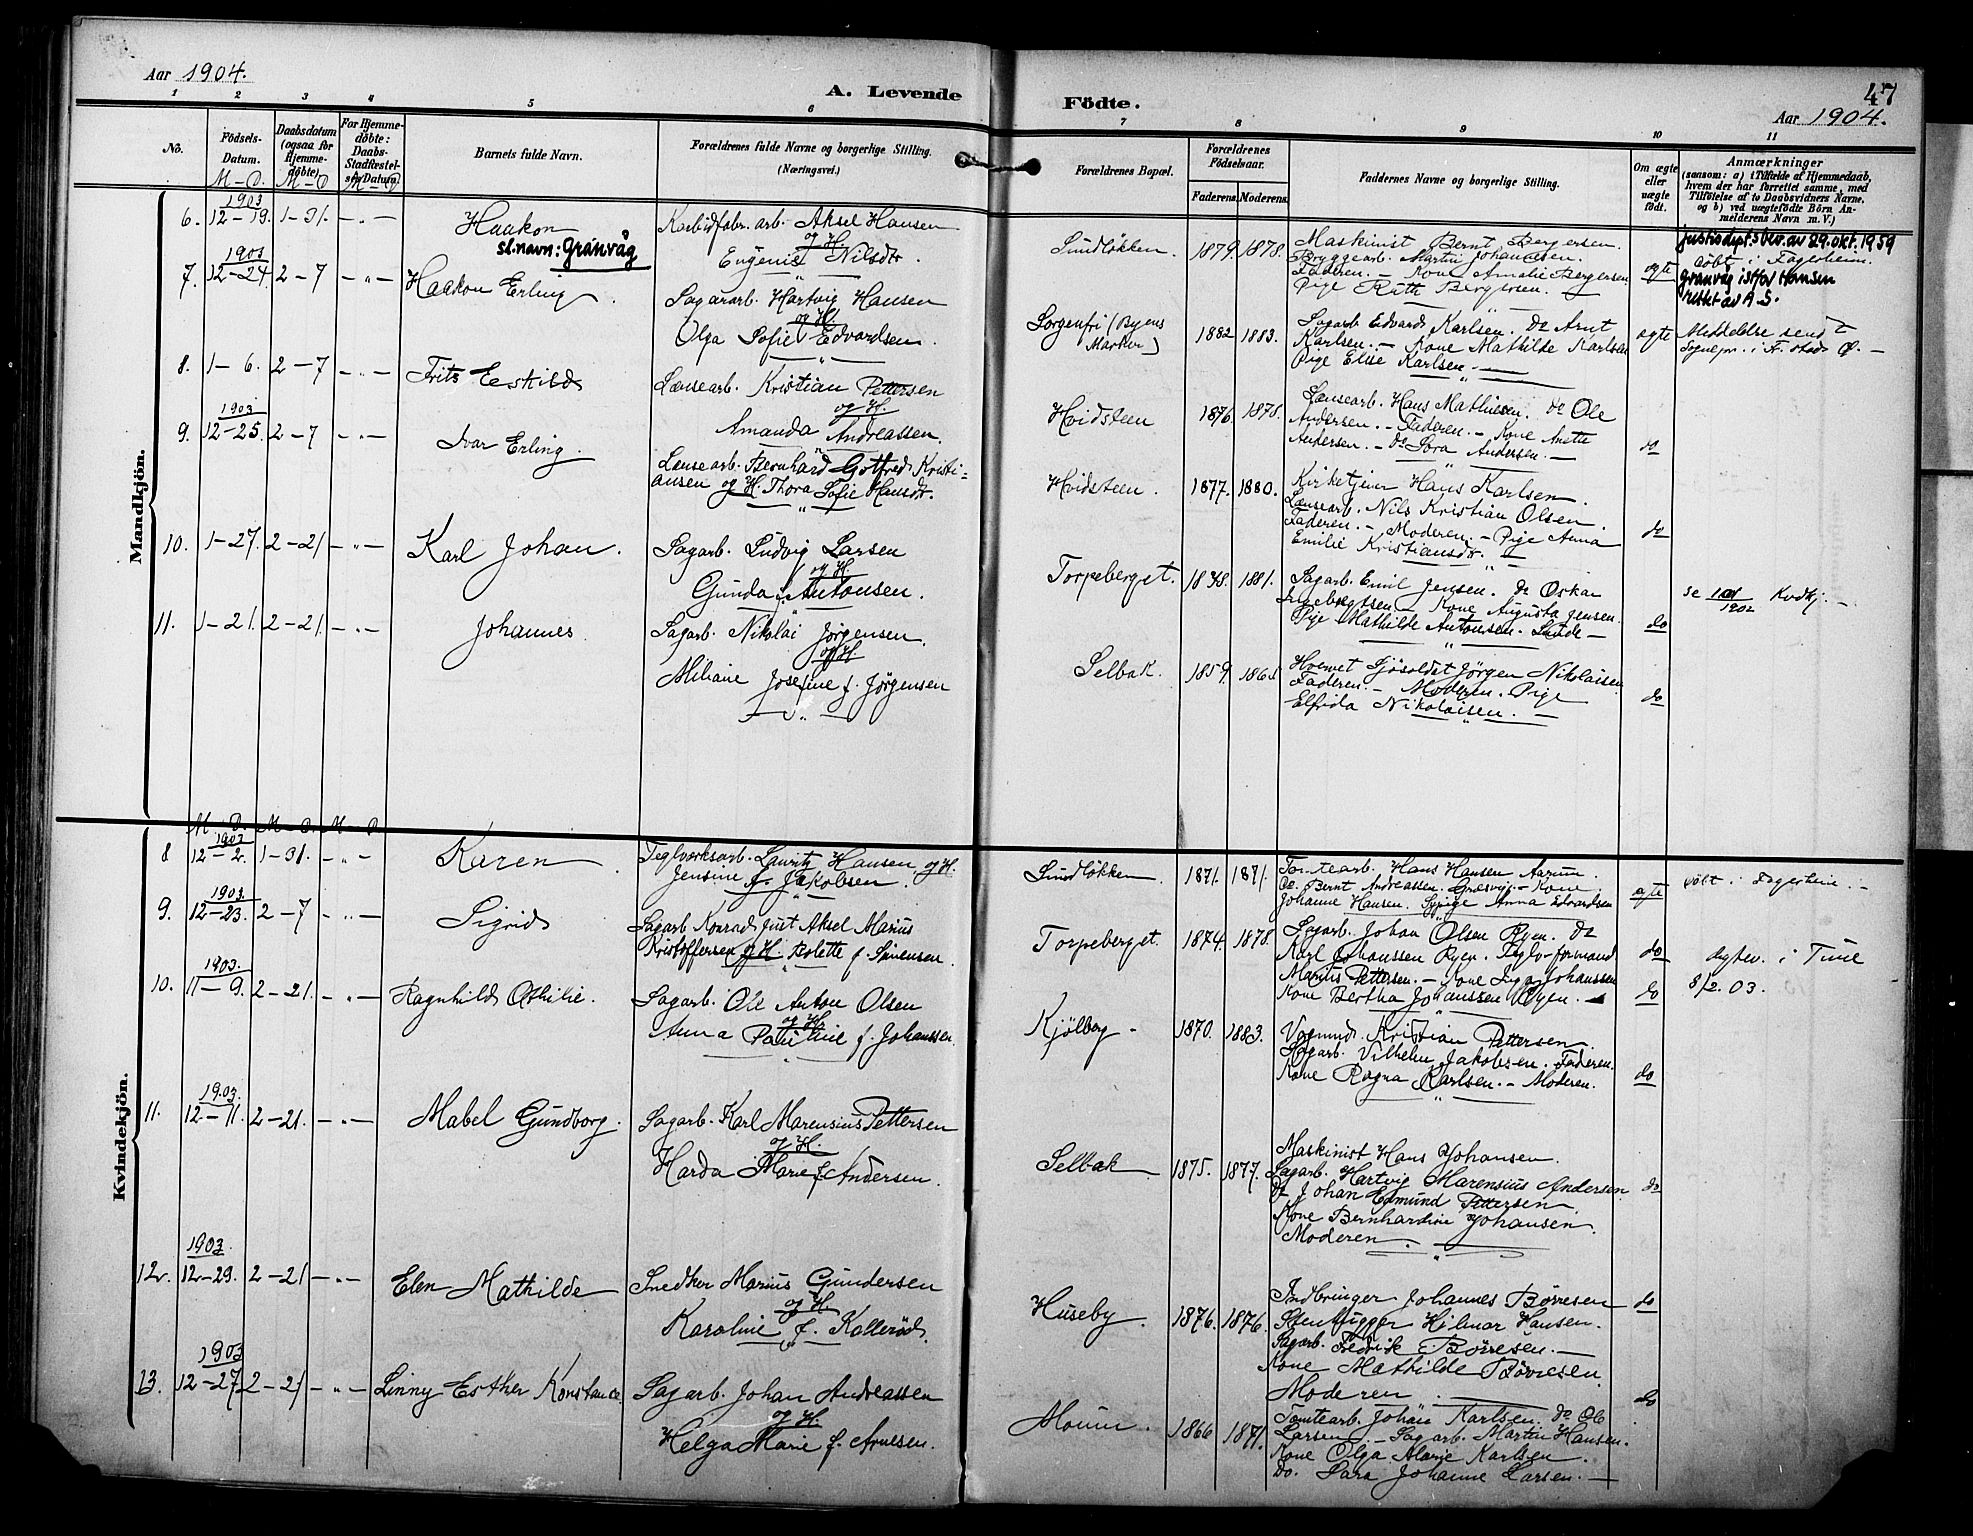 Aar 1904.
A. Levende Födte.
47
Aar 1904.
1 2 3 4 5 6 7 8 9 10 11
No.
Födsels-Datum.
M-D.
Daabsdatum (ogsaa for Hjemme-döbte)
M-D
For Hjemme-döbte: Daabs-Stadfæstel-sens Datum.
M-D.
Barnets fulde Navn.
Forældrenes fulde Navne og borgerlige Stilling.
(Næringsvei.)
Forældrenes Bopæl.
Forældrenes Födselsaar.
Faderens. Moderens.
Faddernes Navne og borgerlige Stilling.
Om ægte eller uægte födt.
Anmærkninger
(saasom: a) i Tilfælde af Hjemmedaab,
hvem der har forrettet samme, med
Tilföielse af to Daabsvidners Navne,
og b) ved uægtefödte Börn An-
melderens Navn m. V.)
Mandkjön.
1903
6. 12-19. 1-31. -"- Haakon
Karbidfabr. arb. Aksel Hansen
og H.
Eugenie Nilsdtr.
Sundløkken 1879. 1878.
Maskinist Bernt Bergersen.
Bryggearb. Martin Johansen
Faderen. - Kone Amalie Bergersen.
Pige Ruth Bergersen.
ægte
Justisdept.s bev. av 29. okt. 1959
Döbt i Fagerheim.
Granvåg istfor Hansen
sl.navn: Granvåg
1903
7. 12-24. 2-7 -"- Haakon Erling.
Sagarb. Hartvig Hansen
og H.
Olga Sofie Edvardsen.
Sorgenfri (Byens
Marker)
1882 1883.
Sagarb Edvard Karlsen. do Arnt
Karlsen. - Kone Mathilde Karlsen
Pige Elise Karlsen.
ægte
Meddelelse sendt
Sognepr. i Fr.stad Ø. -
8. 1-6. 2-7 -"- Frits Eskild
Lænsearb. Kristian Pettersen
og H.
Amanda Andreassen.
Hvidsteen 1876. 1878.
Lænsearb. Hans Mathiesen. do Ole
Andersen. - Faderen. - Kone Anette
Andersen. - do Lora Andersen. -
do
1903
9. 12-25. 2-7 -"- Ivar Erling.
Lænsearb. Bernhard Gotfred Kristi-
ansen og H. Thora Sofie Hansdtr.
Hvidsteen. 1877. 1880.
Kirketjener Hans Karlsen.
Lænsearb. Nils Kristian Olsen.
Faderen. - Moderen. - Pige Anna
Emilie Kristiansdtr.
do
10. 1-27. 2-21 -"- Karl Johan.
Sagarb. Ludvig Larsen
og H.
Gunda f. Antonsen.
Torpeberget. 1878. 1881.
Sagarb. Emil Jensen. do Oskar
Ingebregtsen - Kone Augusta Jensen.
Pige Mathilde Antonsen. Lunde -
do
se 101/1902 Kvdkj. -
11. 1-21. 2-21. -"- Johannes.
Sagarb. Nikolai Jørgensen.
og H.
Miliane Josefine f. Jørgensen
Selbak. 1859. 1865
Hvervet Sjøsoldat Jørgen Nikolaisen
Faderen. - Moderen. Pige
Elfrida Nikolaisen. -
do
Kvindekjön.
M-D. M-D. M-D
1903
8 12-2. 1-31. -"- Karen
Teglværksarb. Lauritz Hansen og H.
Jensine f. Jakobsen.
Sundløkken. 1871. 1871.
Tomtearb. Hans Hansen Aarum.
do. Bernt Andreassen. Græsvig. - Kone
Johanne Hansen. Sypige Anna Edvardsen
ægte
Döbt i Fagerheim. -
1903
9. 12-23. 2-7 -"- Sigrid
Sagarb Konrad Just Aksel Marius
Kristoffersen og H. Bolette f. Simensen.
Torpeberget. 1874. 1878.
Sagarb. Johan Olsen Ryen. do
Karl Johanssen Ryen. Teglv-formand
Marius Pettersen. - Kone Inga Johanssen
Kone Bertha Johanssen Ryen. -
do
Ægtev. i Tune
8/2. 03.
1903.
10. 11-9. 2-21. -"- Ragnhild Othilie.
Sagarb. Ole Anton Olsen
og H.
Anna Pauline f. Johanssen.
do
Kjølberg - 1870. 1883.
Vognmd. Kristian Pettersen.
Sagarb. Vilhelm Jakobsen. Faderen.
Kone Ragna Karlsen. - Moderen.
do
1903.
11. 12-11. 2-21. -"- Mabel Gundborg.
Sagarb. Karl Marensius Pettersen
og H.
Harda Marie f. Andersen.
Selbak 1875. 1877.
Maskinist Hans Johansen.
Sagarb. Hartvig Marensius Andersen
do Johan Edmund Pettersen.
Kone Bernhardine Johansen.
Moderen.
do
1903.
12. 12-29. 2-21 -"- Elen Mathilde
Snedker Marius Gundersen
og H.
Karoline f. Kallerød.
Huseby. 1876. 1876.
Indbringer Johannes Børresen
Stenhugger Hilmar Hansen.
Sagarb. Fredrik Børresen. -
Kone Mathilde Børresen.
Moderen.
do
1903
13. 12-27 2-21 -"- Linny Esther Konstance.
Sagarb. Johan Andreassen
og H.
Helga Marie f. Arnesen.
Moum. 1866 1871.
Tomtearb. Johan Karlsen. do Ole
Larsen. - Sagarb. Martin Hansen.
Kone Olga Marie Karlsen.
do. Sara Johanne Larsen. -
do